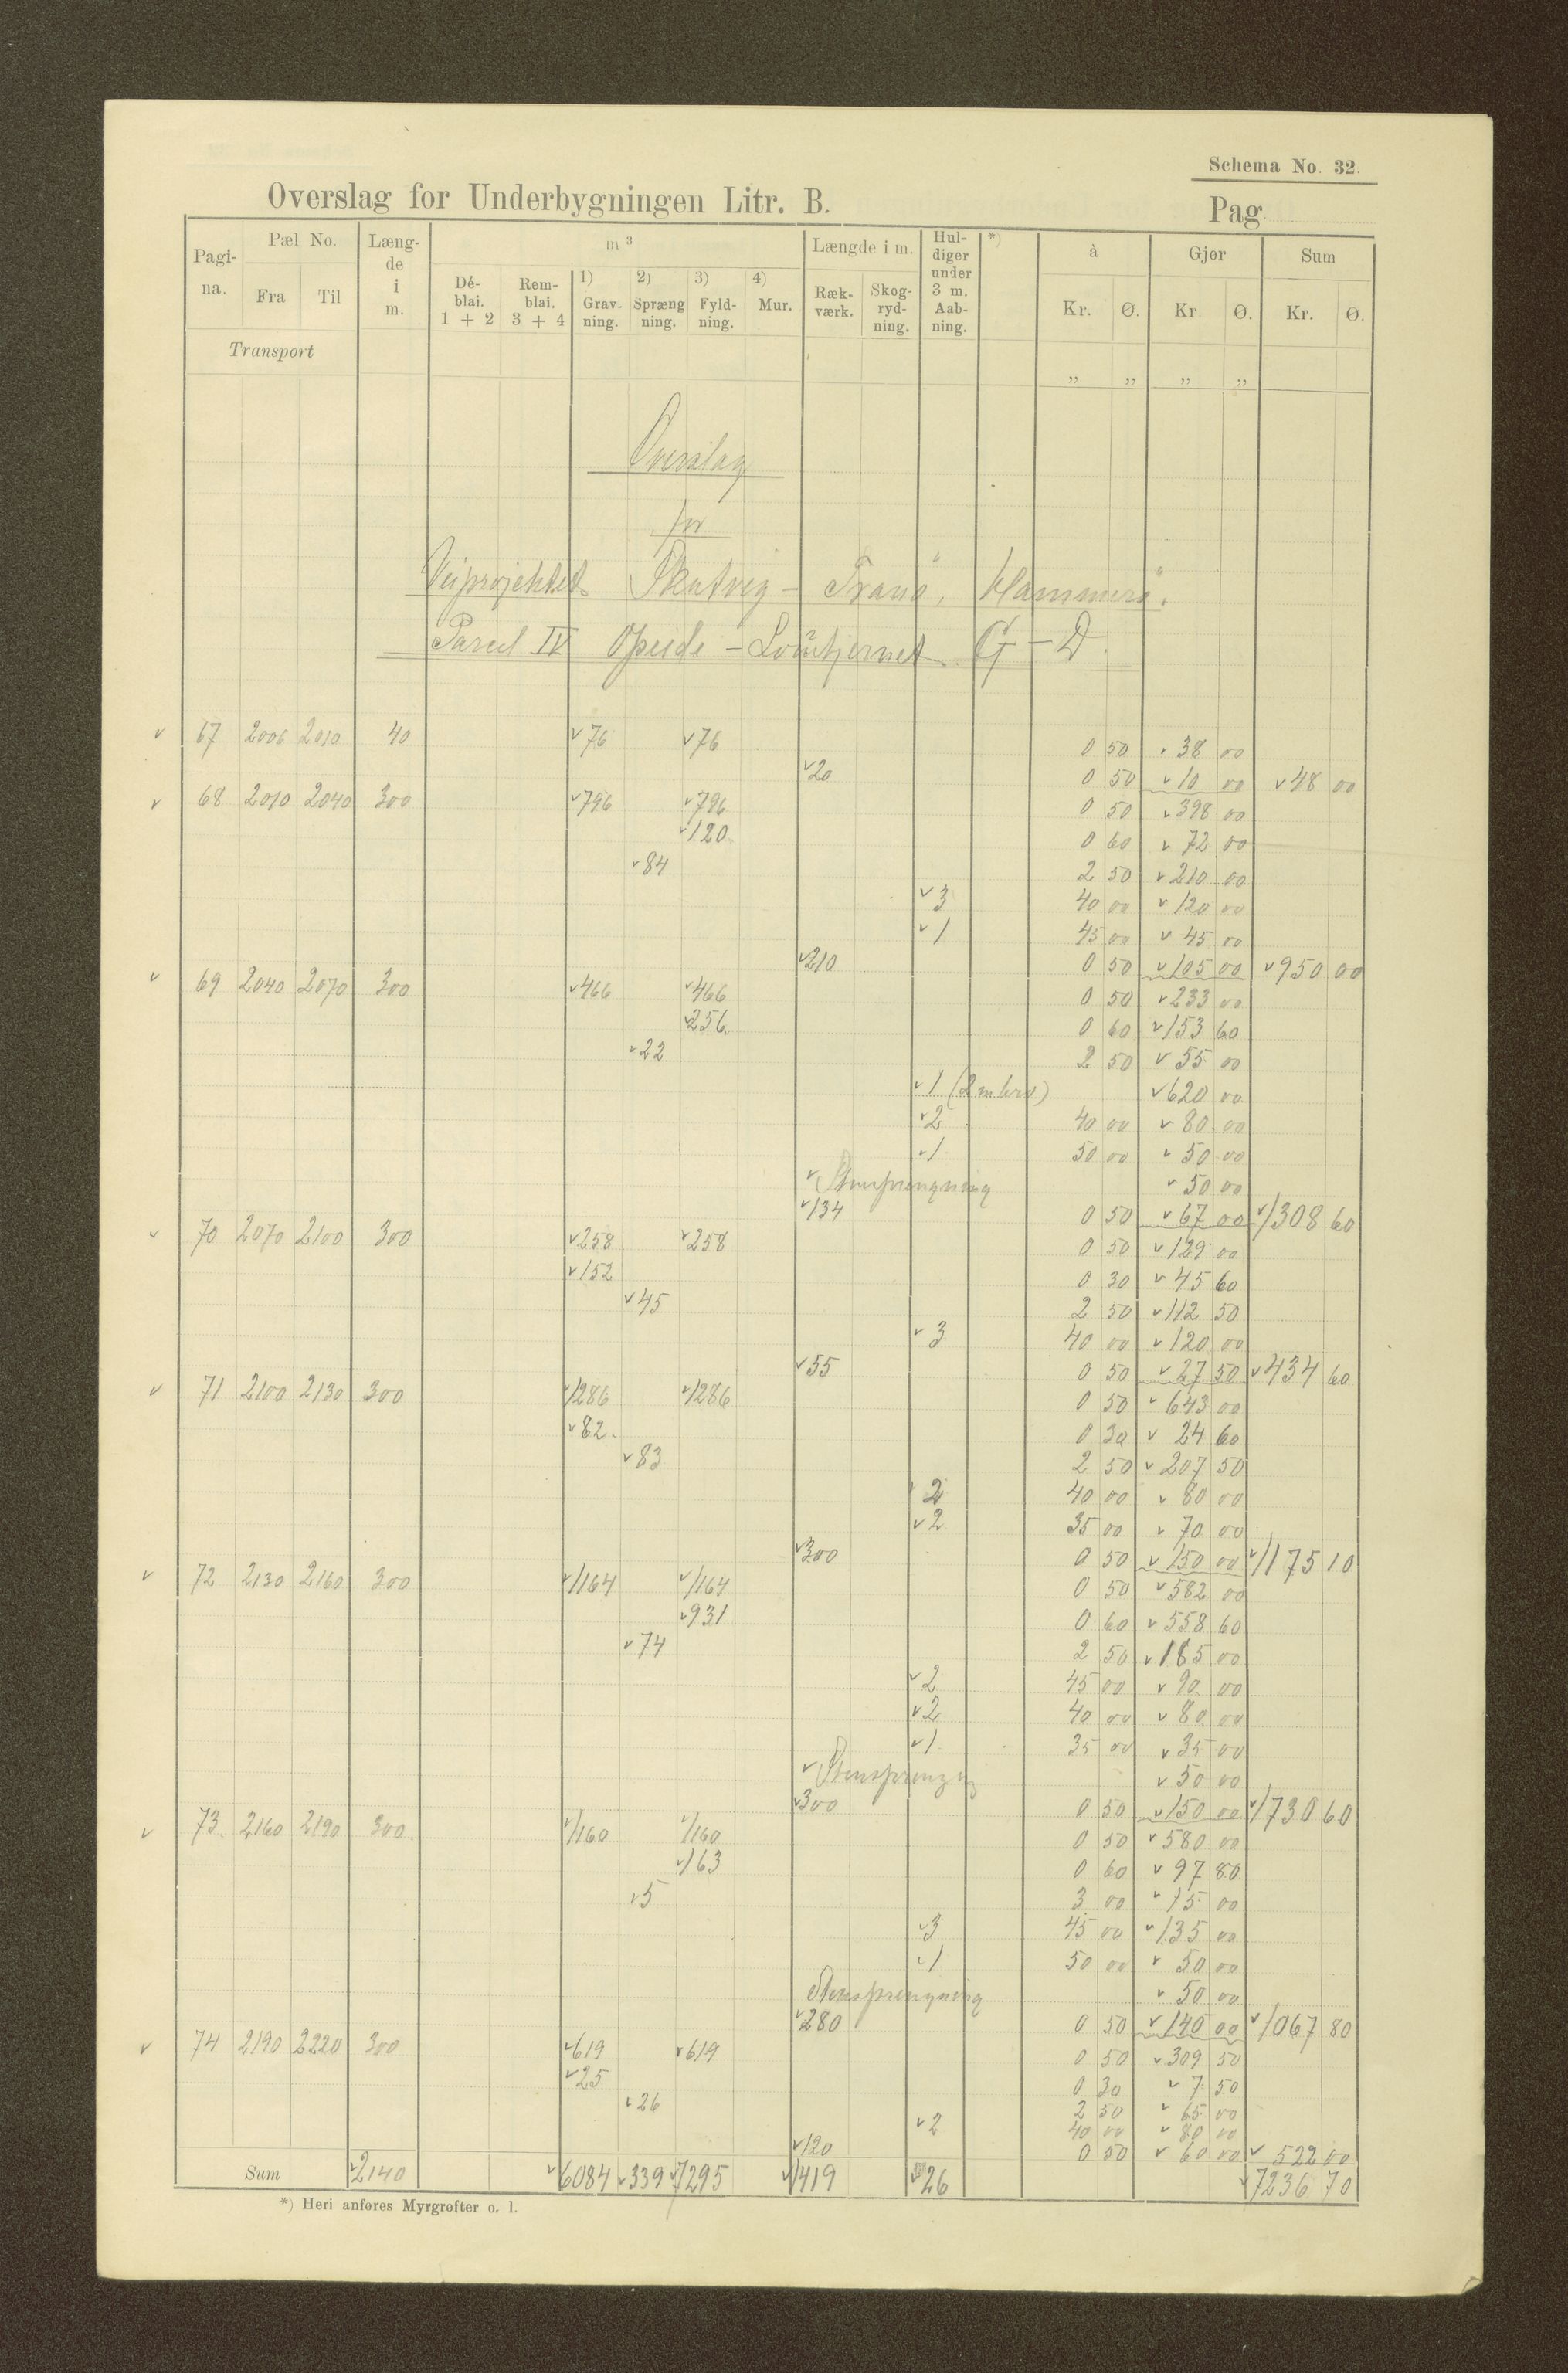 Schema No. 32.
Overslag for Underbygningen Litr. B. Pag.
Pagina. Pæl No. Fra Til Længde i m. m³ Dé-blai. 1 + 2 Rem-blai. 3 + 4 1) Grav-ning. 2) Spræng ning. 3) Fyld-ning. 4) Mur. Længde i m. Ræk-værk. Skog-ryd-ning. Hul-diger under 3 m. Aab-ning. *) à Kr. Ø. Gjør Kr Ø. Sum Kr. Ø.
Transport
„ „ „ „
Overslag
for
Veiprojektet Skutvig - Tranö, Hammerö.
Parcel IV Opeide - G - D.
v 67 2006 2010 40 v 76 v 76 0 50 v 38 00
v 20 0 50 v 10 00 v 48 00
v 68 2010 2040 300 v 796 v 796 0 50 v 398 00
v 120 0 60 v 72 00
v 84 2 50 v 210 00
v 3 40 00 v 120 00
v 1 45 00 v 45 00
v 210 0 50 v 105 00 v 950 00
v 69 2040 2070 300 v 466 v 466 0 50 v 233 00
v 256 0 60 v 153 60
v 22 2 50 v 55 00
v 1 (2 m bro) v 620 00
v 2 40 00 v 80 00
v 1 50 00 v 50 00
v Stensprengning v 50 00
v 134 0 50 v 67 00 v 1308 60
v 70 2070 2100 300 v 258 v 258 0 50 v 129 00
v 152 0 30 v 45 60
v 45 2 50 v 112 50
v 3 40 00 v 120 00
v 55 0 50 v 27 50 v 434 60
v 71 2100 2130 300 v 1286 v 1286 0 50 v 643 00
v 82 0 30 v 24 60
v 83 2 50 v 207 50
v 2 40 00 v 80 00
v 2 35 00 v 70 00
v 300 0 50 v 150 00 v 1175 10
v 72 2130 2160 300 v 1164 v 1164 0 50 v 582 00
v 931 0 60 v 558 60
v 74 2 50 v 185 00
v 2 45 00 v 90 00
v 2 40 00 v 80 00
v 1 35 00 v 35 00
v Stensprengng v 50 00
v 300 0 50 v 150 00 v 1730 60
v 73 2160 2190 300 v 1160 v 1160 0 50 v 580 00
v 163 0 60 v 97 80
v 5 3 00 v 15 00
v 3 45 00 v 135 00
v 1 50 00 v 50 00
Stensprengning v 50 00
v 280 0 50 v 140 00 v 1067 80
v 74 2190 2220 300 v 619 v 619 0 50 v 309 50
v 25 0 30 v 7 50
v 26 2 50 v 65 00
v 2 40 00 v 80 00
v 120 0 50 v 60 00 v 522 00
Sum v 2140 v 6084 v 339 v 7295 v 1419 v 26 v 7236 70
*) Heri anføres Myrgrøfter o. l.